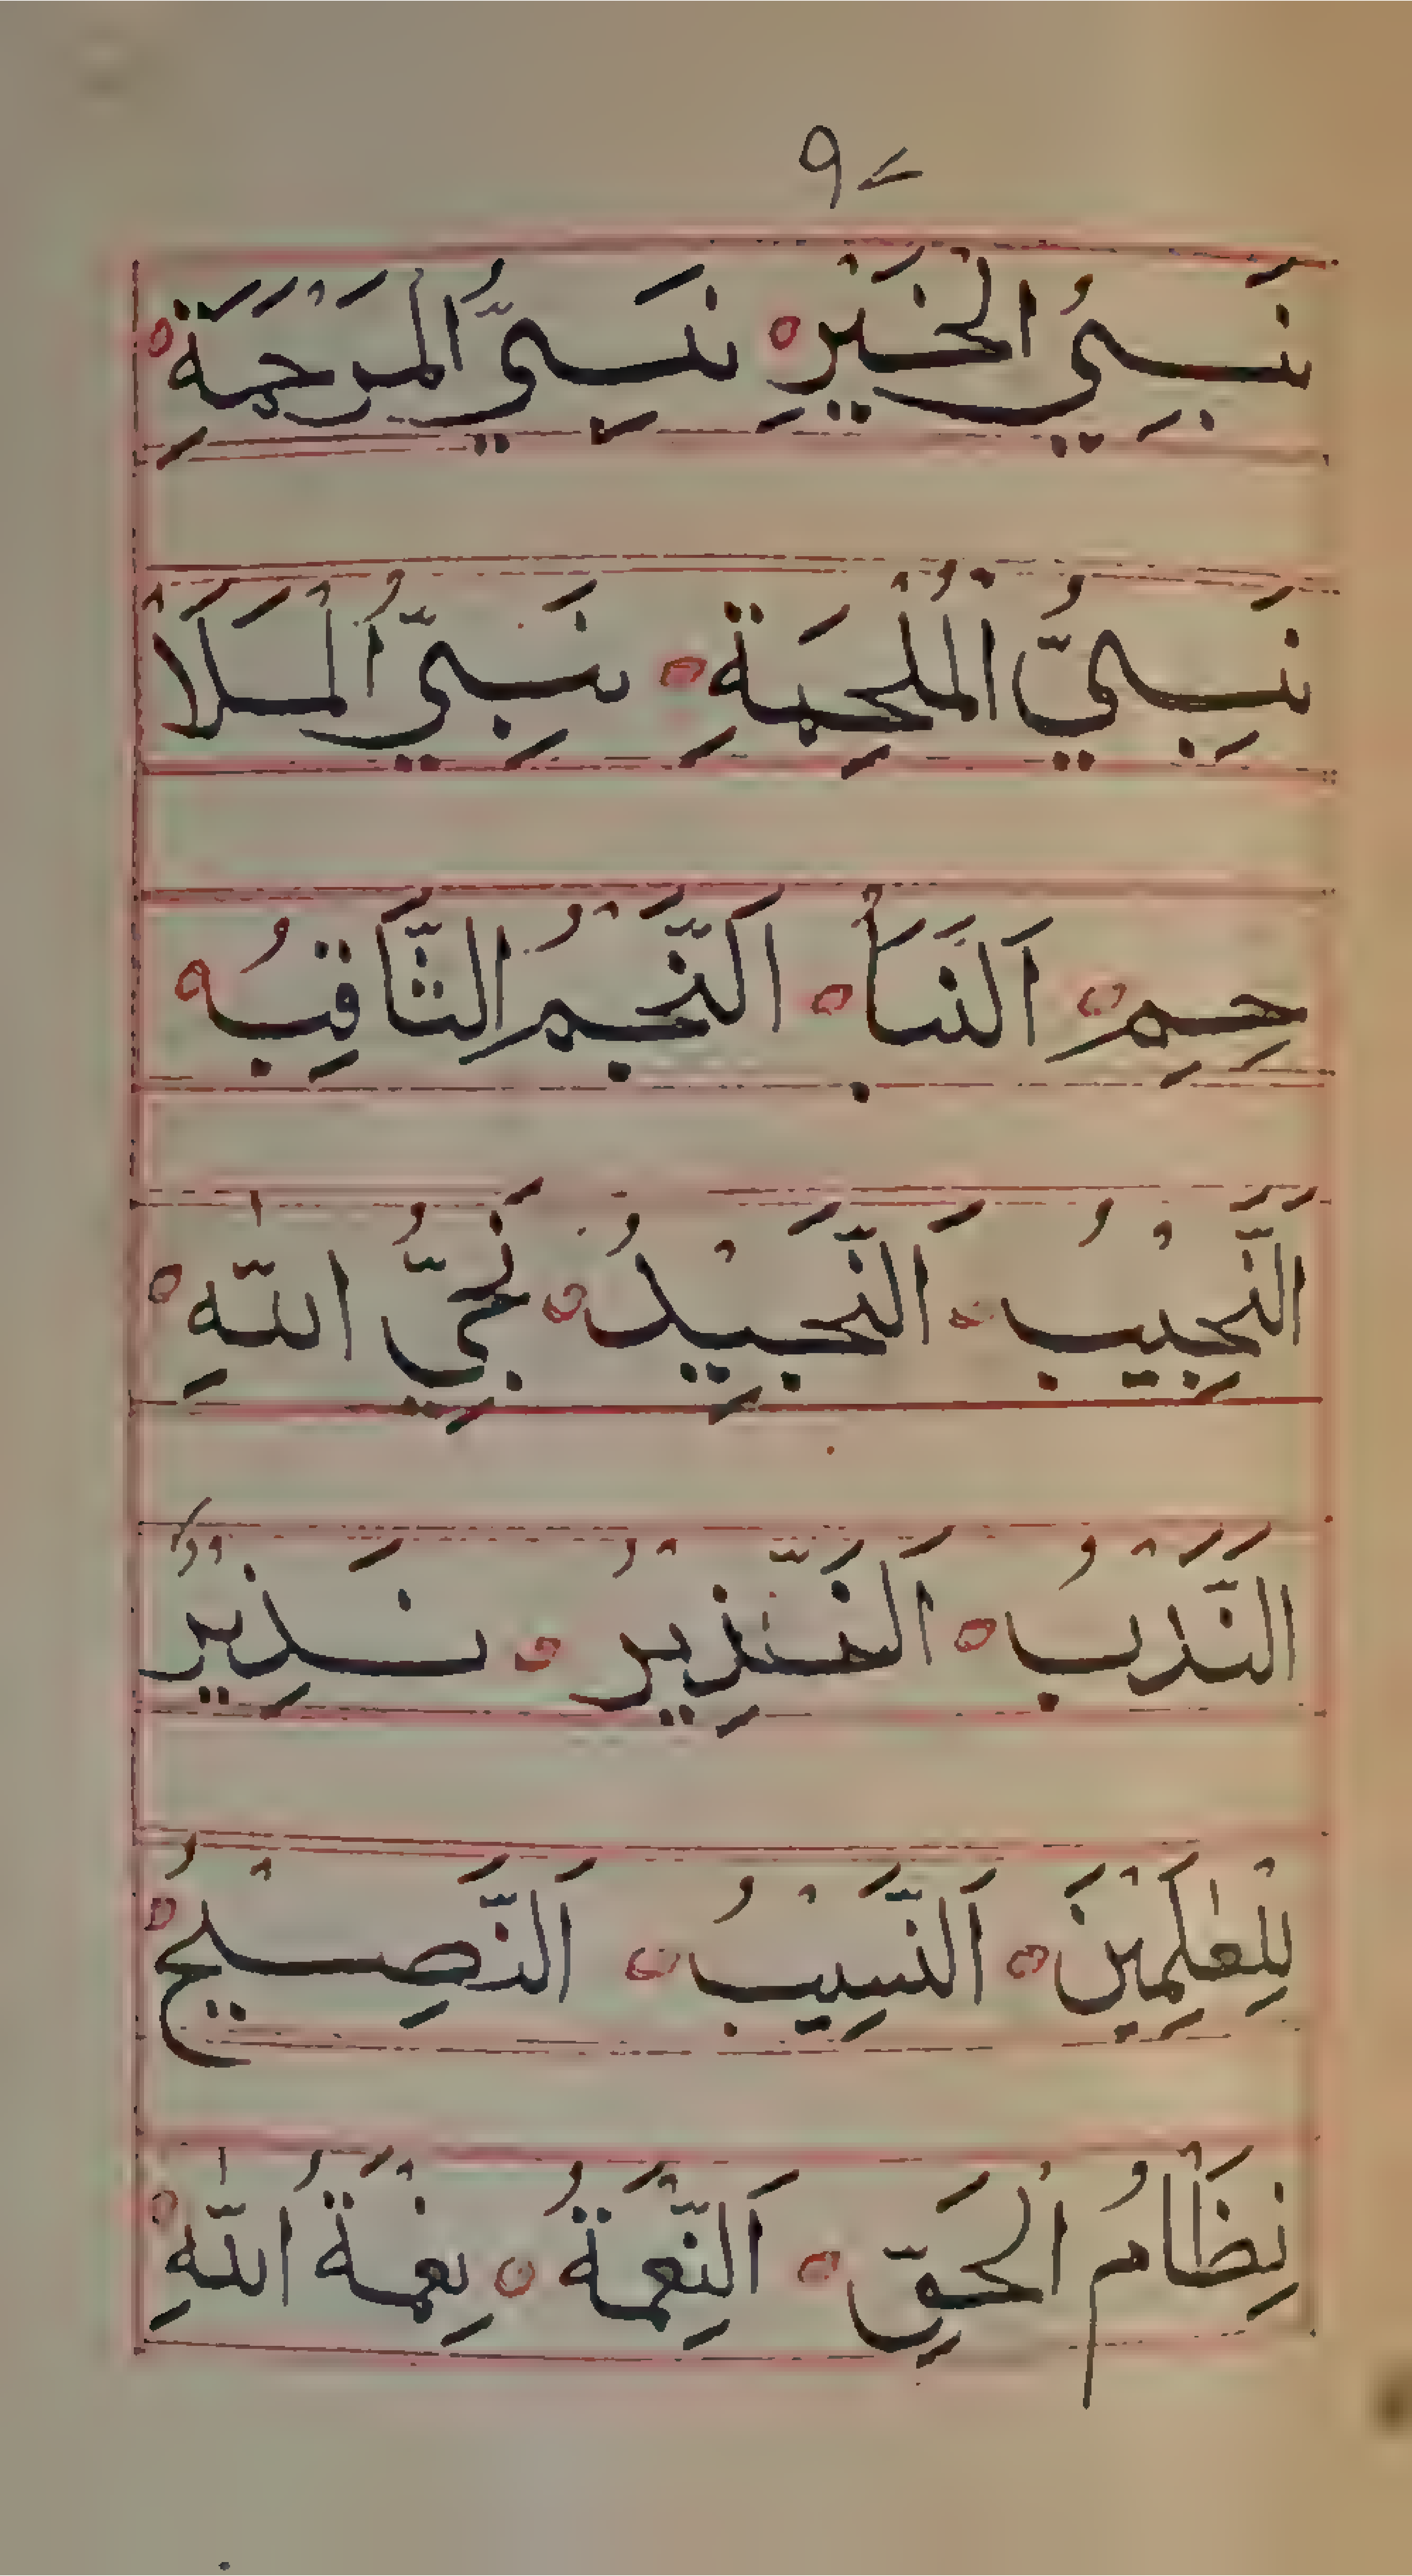 ٩٧
نَبِيُّ الْخَيْرِ ۝ نَبِيُّ الْمَرْحَمَةِ ۝
نَبِيُّ الْمُلْحِمَةِ ۝ نَبِيُّ الْمَلَا
حِمِ ۝ اَلنَّبَأُ ۝ اَلنَّجْمُ الثَّاقِبُ ۝
اَلنَّجِيْبُ ۝ اَلنَّجِيْدُ ۝ نَجِيُّ اللّٰهِ ۝
اَلنَّدْبُ ۝ اَلنَّذِيْرُ ۝ نَذِيْرٌ
لِلْعٰلَمِيْنَ ۝ اَلنَّسِيْبُ ۝ اَلنَّصِيْحُ ۝
نِظَامُ الْحَقِّ ۝ اَلنِّعْمَةُ ۝ نِعْمَةُ اللّٰهِ ۝